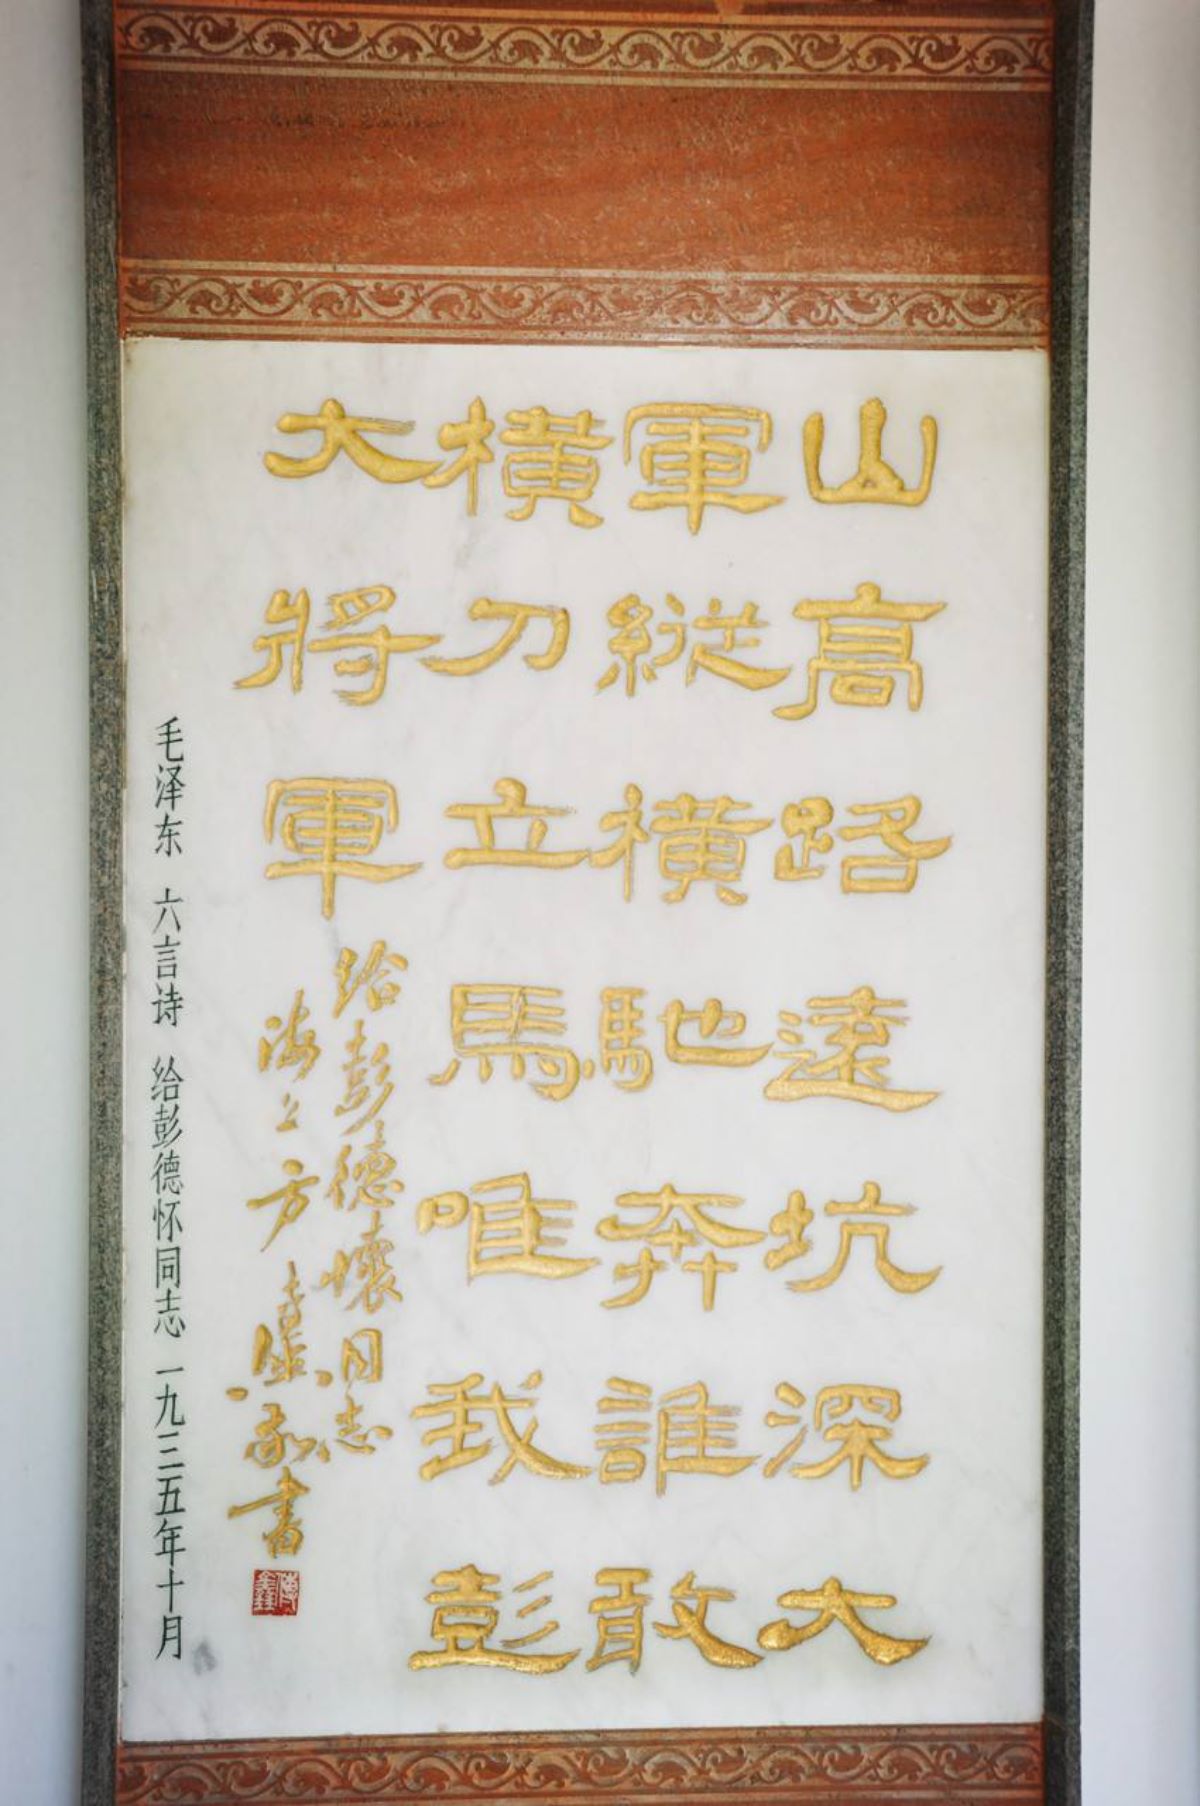 山高路遠坑深大
軍縱橫馳奔誰敢
橫刀立馬唯我彭
大將軍
给彭德懷同志
海上方
書
毛泽东 六言诗 给彭德怀同志 一九三五年十月